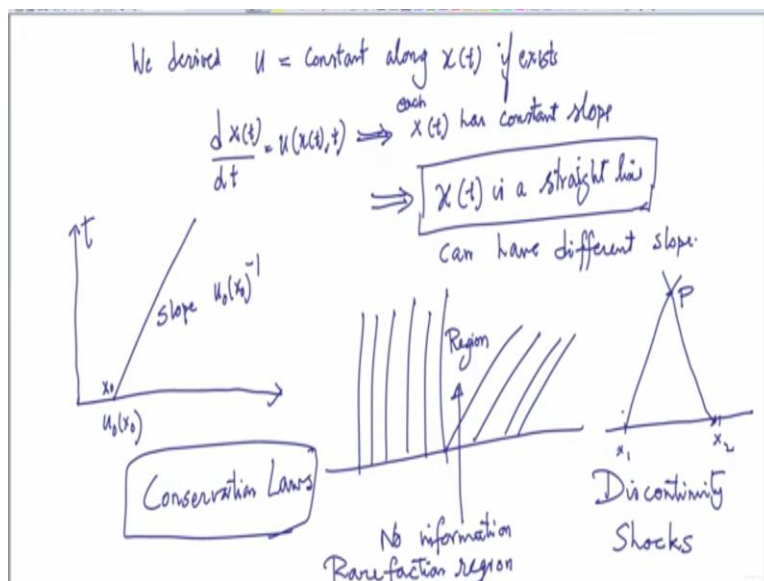 We derived u = Constant along x(t) if exists
dx(t)/dt = u(x(t), t) ⟹ each x(t) has constant slope
⟹ x(t) is a straight line
can have different slope.
t
slope u₀(x₀)⁻¹
x₀
u₀(x₀)
Region
P
x₁
x₂
Conservation Laws
No information
Rarefaction region
Discontinuity
Shocks